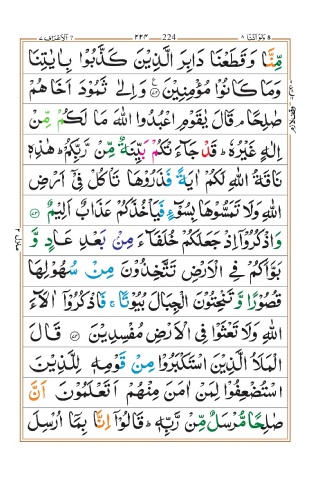 الاعراف ٧ ٢٢٣ 224 ولواننا ٨
مِّنَّا وَقَطَعْنَا دَابِرَ الَّذِيْنَ كَذَّبُوْا بِاٰيٰتِنَا
وَمَا كَانُوْا مُؤْمِنِيْنَ ۞ وَاِلٰى ثَمُوْدَ اَخَاهُمْ
صٰلِحًا ۘ قَالَ يٰقَوْمِ اعْبُدُوا اللّٰهَ مَا لَكُمْ مِّنْ
اِلٰهٍ غَيْرُهٗ ؕ قَدْ جَآءَتْكُمْ بَيِّنَةٌ مِّنْ رَّبِّكُمْ ؕ هٰذِهٖ
نَاقَةُ اللّٰهِ لَكُمْ اٰيَةً فَذَرُوْهَا تَاْكُلْ فِيْۤ اَرْضِ
اللّٰهِ وَلَا تَمَسُّوْهَا بِسُوْٓءٍ فَيَاْخُذَكُمْ عَذَابٌ اَلِيْمٌ ۞
وَاذْكُرُوْۤا اِذْ جَعَلَكُمْ خُلَفَآءَ مِنْۢ بَعْدِ عَادٍ وَّ
بَوَّاَكُمْ فِي الْاَرْضِ تَتَّخِذُوْنَ مِنْ سُهُوْلِهَا
قُصُوْرًا وَّتَنْحِتُوْنَ الْجِبَالَ بُيُوْتًا ۚ فَاذْكُرُوْۤا اٰلَآءَ
اللّٰهِ وَلَا تَعْثَوْا فِي الْاَرْضِ مُفْسِدِيْنَ ۞ قَالَ
الْمَلَاُ الَّذِيْنَ اسْتَكْبَرُوْا مِنْ قَوْمِهٖ لِلَّذِيْنَ
اسْتُضْعِفُوْا لِمَنْ اٰمَنَ مِنْهُمْ اَتَعْلَمُوْنَ اَنَّ
صٰلِحًا مُّرْسَلٌ مِّنْ رَّبِّهٖ ؕ قَالُوْۤا اِنَّا بِمَاۤ اُرْسِلَ